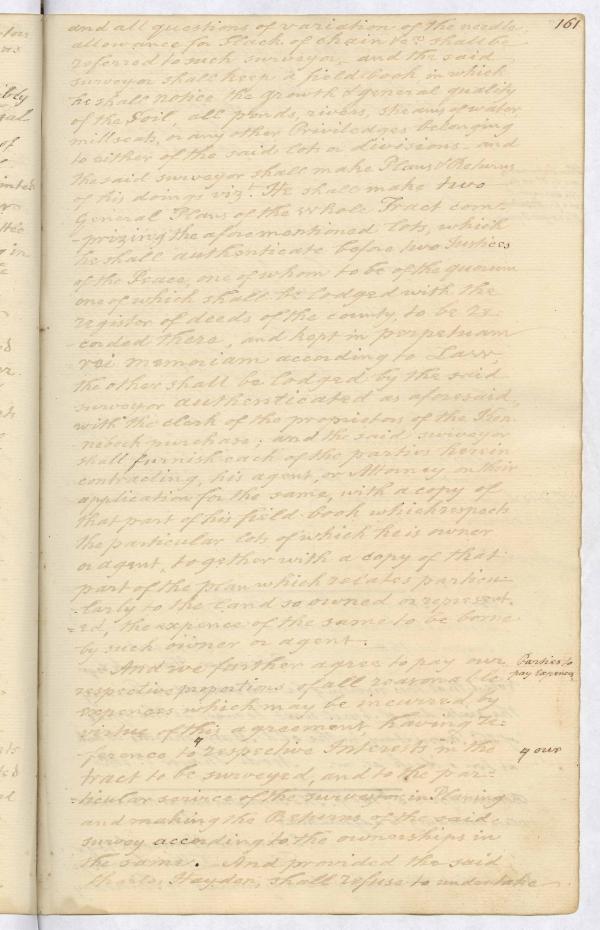 161
and all questions of variation of the needle,
allowance for Slack of chain &c.a shall be
referred to such surveyor, and the said
surveyor shall keep a field-book in which
he shall notice the growth & general quality
of the Soil, all ponds, rivers, streams of water
millseats, or any other Priviledges belonging
to either of the said lots or divisions and
the said surveyor shall make Plans & Returns
of his doings vizt. He shall make two
General Plans of the whole Tract com-
-prizing the aforementioned lots, which
he shall authenticate before two Justices
of the Peace, one of whom to be of the quorum
one of which shall be lodged with the
register of deeds of the county, to be re-
corded there, and kept in perpetuam
rei memoriam according to Law,
the other shall be lodged by the said
surveyor authenticated as aforesaid,
with the clerk of the proprietors of the Ken-
nebeck purchase; and the said surveyor
shall furnish each of the parties herein
contracting, his agent, or Attorney on their
application for the same, with a copy of
that part of his field-book which respects
the particular lots of which he is owner
or agent, together with a copy of that
part of the plan which relates particu-
-larly to the land so owned or represent-
-ed, the expence of the same to be borne
by such owner or agent.
And we farther agree to pay our
Parties to
pay Expences
respective proportions of all reasonable
expences which may be incurred by
virtue of this agreement, having re-
-ference to respective Interests in the
our
tract to be surveyed, and to the par-
-ticular service of the surveyor in Planing
and making the Returns of the said
survey according to the ownerships in
the same. And provided the said
Hayden, shall refuse to undertake